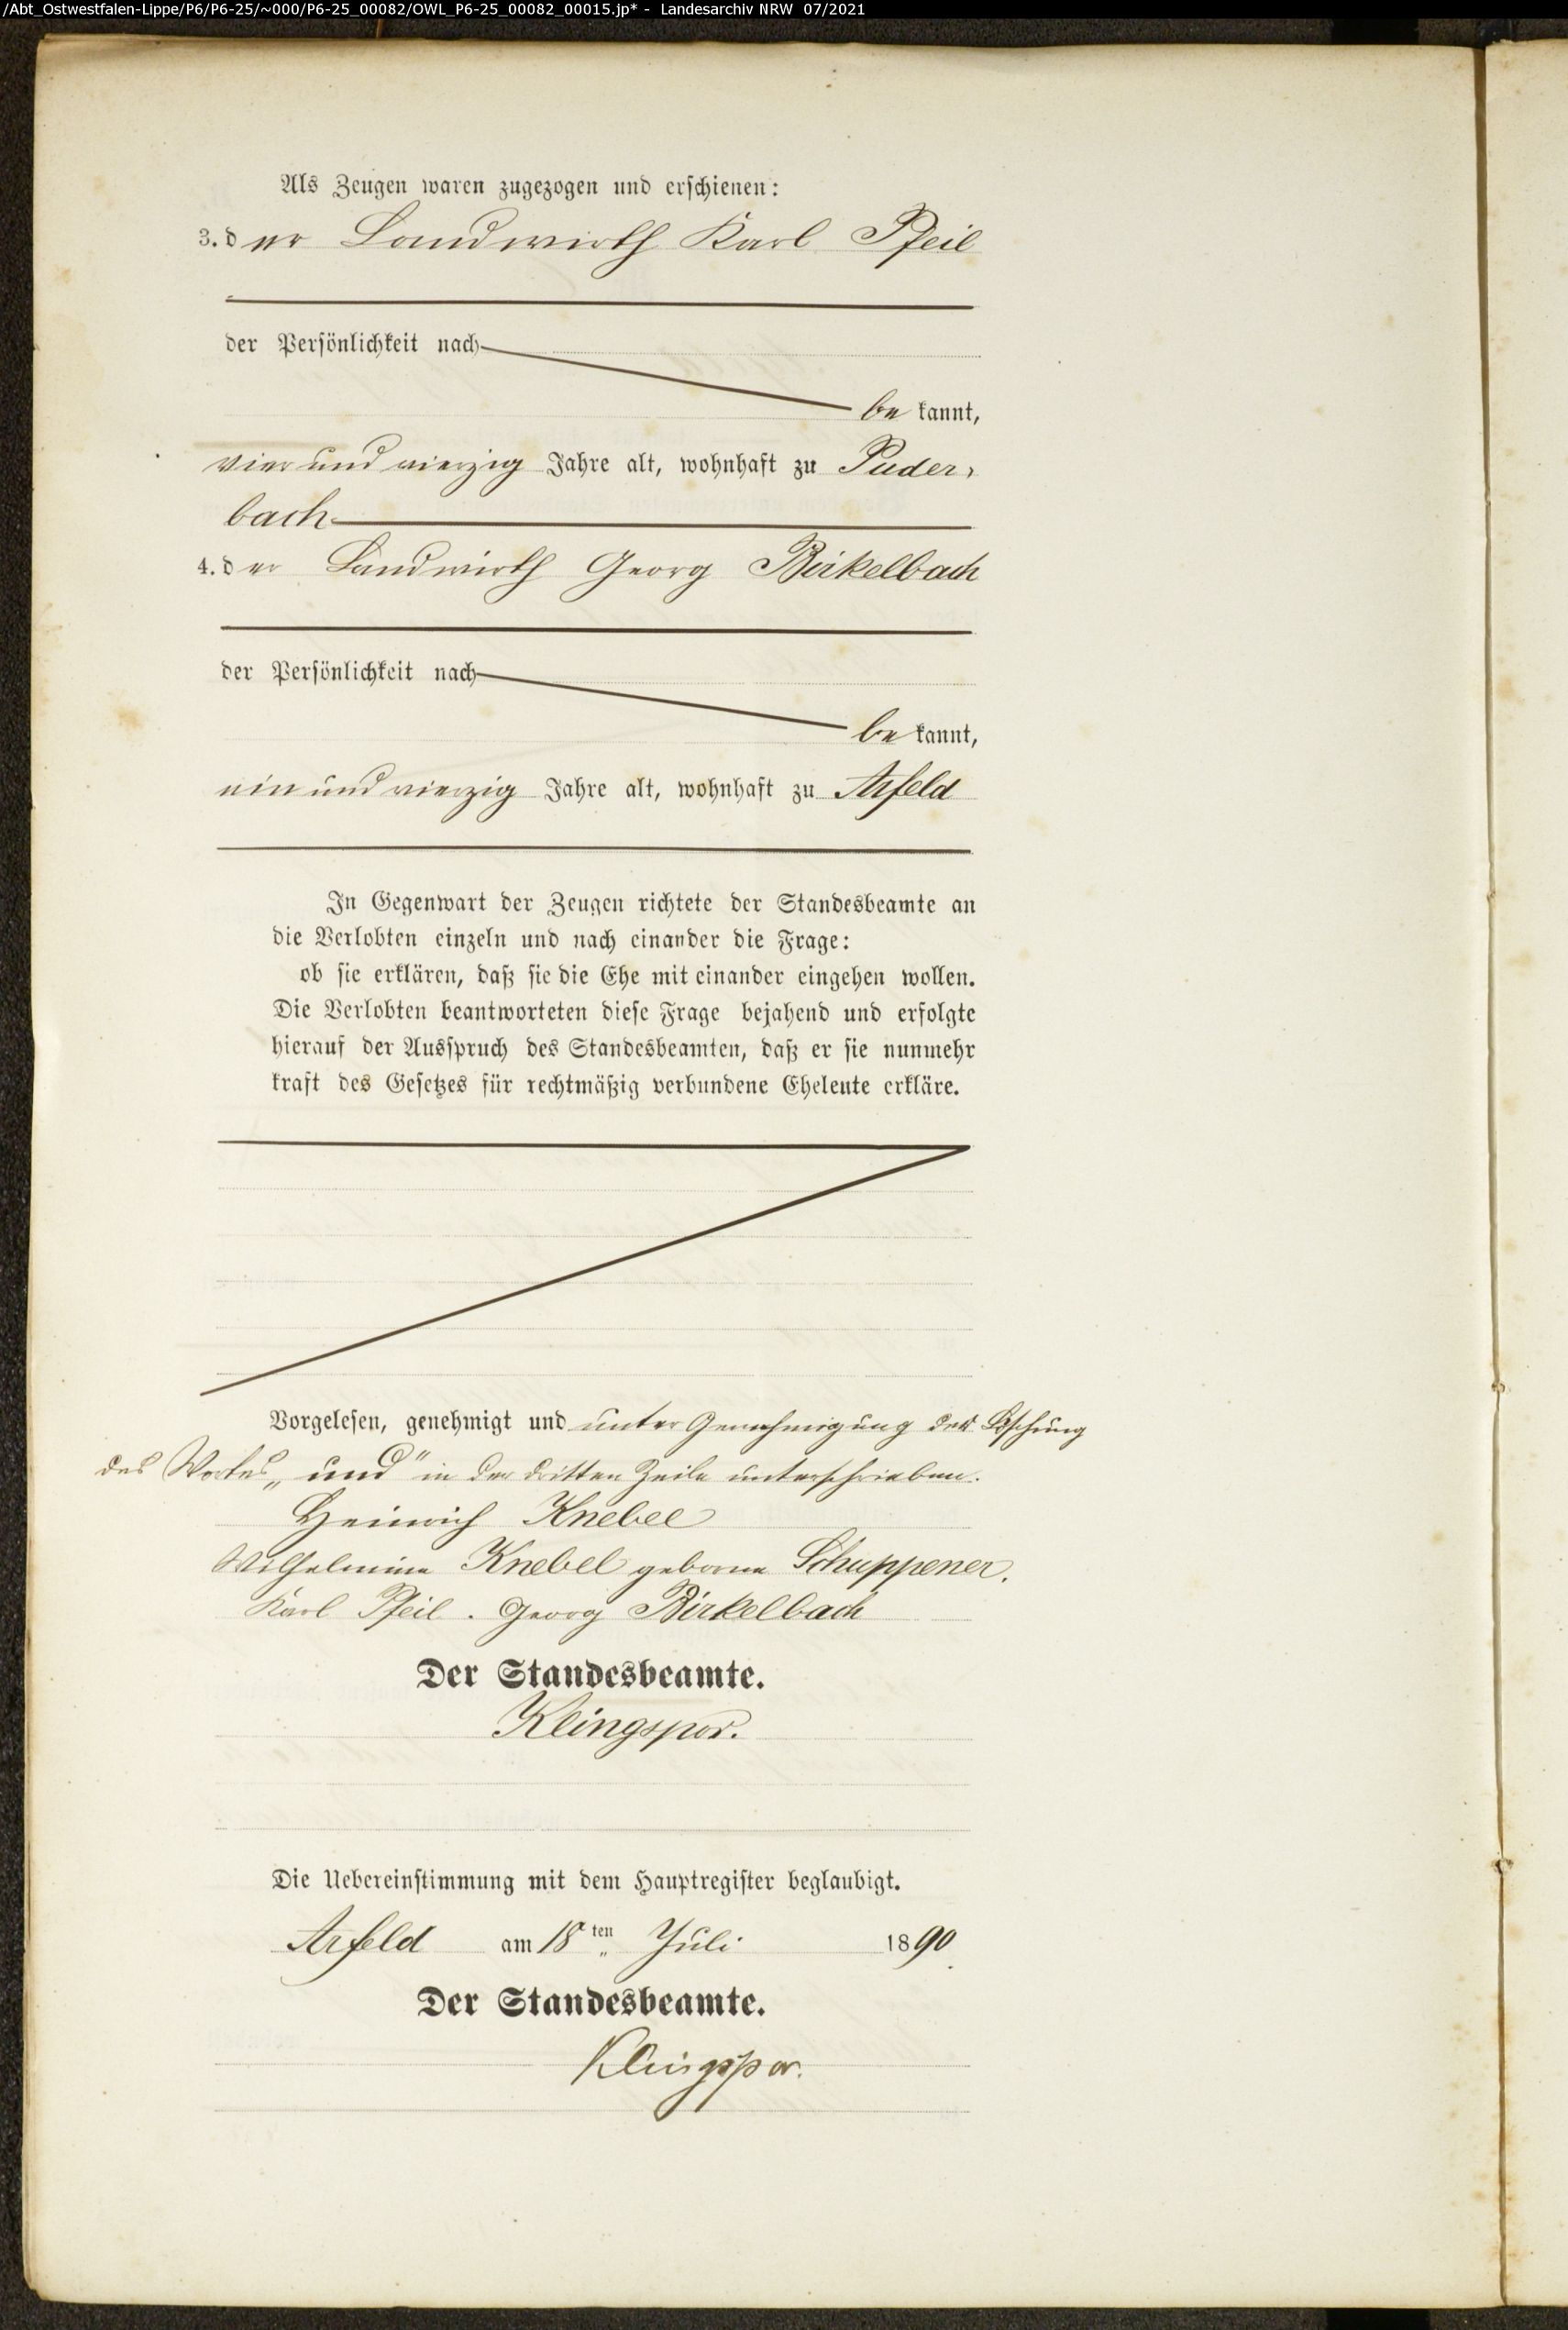 /Abt_Ostwestfalen-Lippe/P6/P6-25/~000/P6-25_00082/OWL_P6-25_00082_00015.jp* - Landesarchiv NRW 07/2021
Als Zeugen waren zugezogen und erschienen:
3. der Landwirth Karl Pfeil
der Persönlichkeit nach
be kannt,
vier und vierzig Jahre alt, wohnhaft zu Puder-
bach
4. der Landwirth Georg Birkelbach
der Persönlichkeit nach
be kannt,
ein und vierzig Jahre alt, wohnhaft zu Arfeld
In Gegenwart der Zeugen richtete der Standesbeamte an
die Verlobten einzeln und nach einander die Frage:
ob sie erklären, daß sie die Ehe mit einander eingehen wollen.
Die Verlobten beantworteten diese Frage bejahend und erfolgte
hierauf der Ausspruch des Standesbeamten, daß er sie nunmehr
kraft des Gesetzes für rechtmäßig verbundene Eheleute erkläre.
Vorgelesen, genehmigt und unter Genehmigung der Löschung
des Wortes „und" in der dritten Zeile unterschrieben.
Heinrich Knebel
Wilhelmine Knebel geborne Schuppener.
Karl Pfeil. Georg Birkelbach
Der Standesbeamte.
Klingspor.
Die Uebereinstimmung mit dem Hauptregister beglaubigt.
Arfeld am 18ten Juli 1890
Der Standesbeamte.
Klingspor.